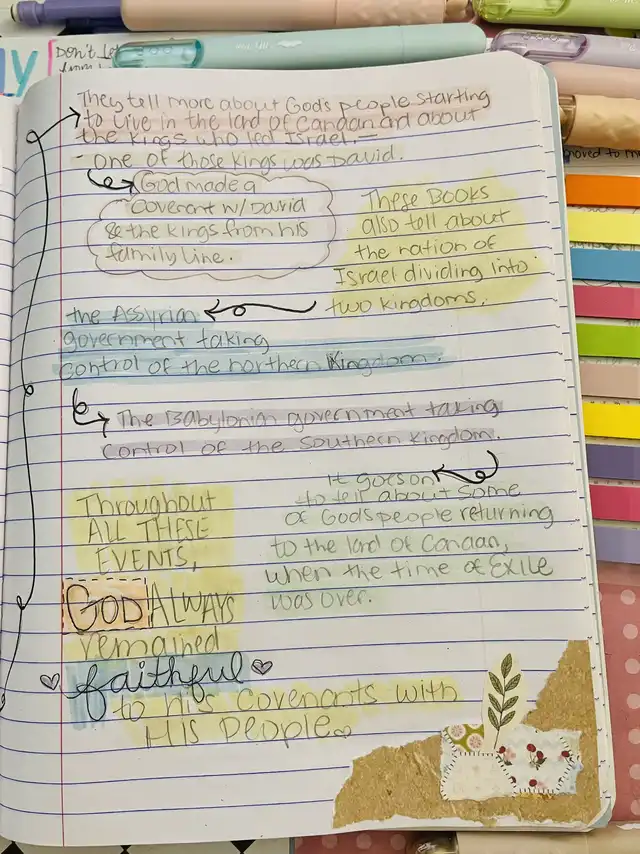 Don't let
They tell more about God's people starting
to live in the land of Canaan and about
the kings who led Israel.
- one of those kings was David.
God made a
Covenant w/ David
& the kings from his
family line.
These Books
also tell about
the nation of
Israel dividing into
two kingdoms.
the Assyrian
government taking
control of the northern Kingdom.
The Babylonian government taking
control of the Southern Kingdom.
It goes on
to tell about some
of God's people returning
to the land of Canaan,
when the time of Exile
was over.
Throughout
ALL THESE
EVENTS,
GOD ALWAYS
remained
faithful
to His Covenants with
His People